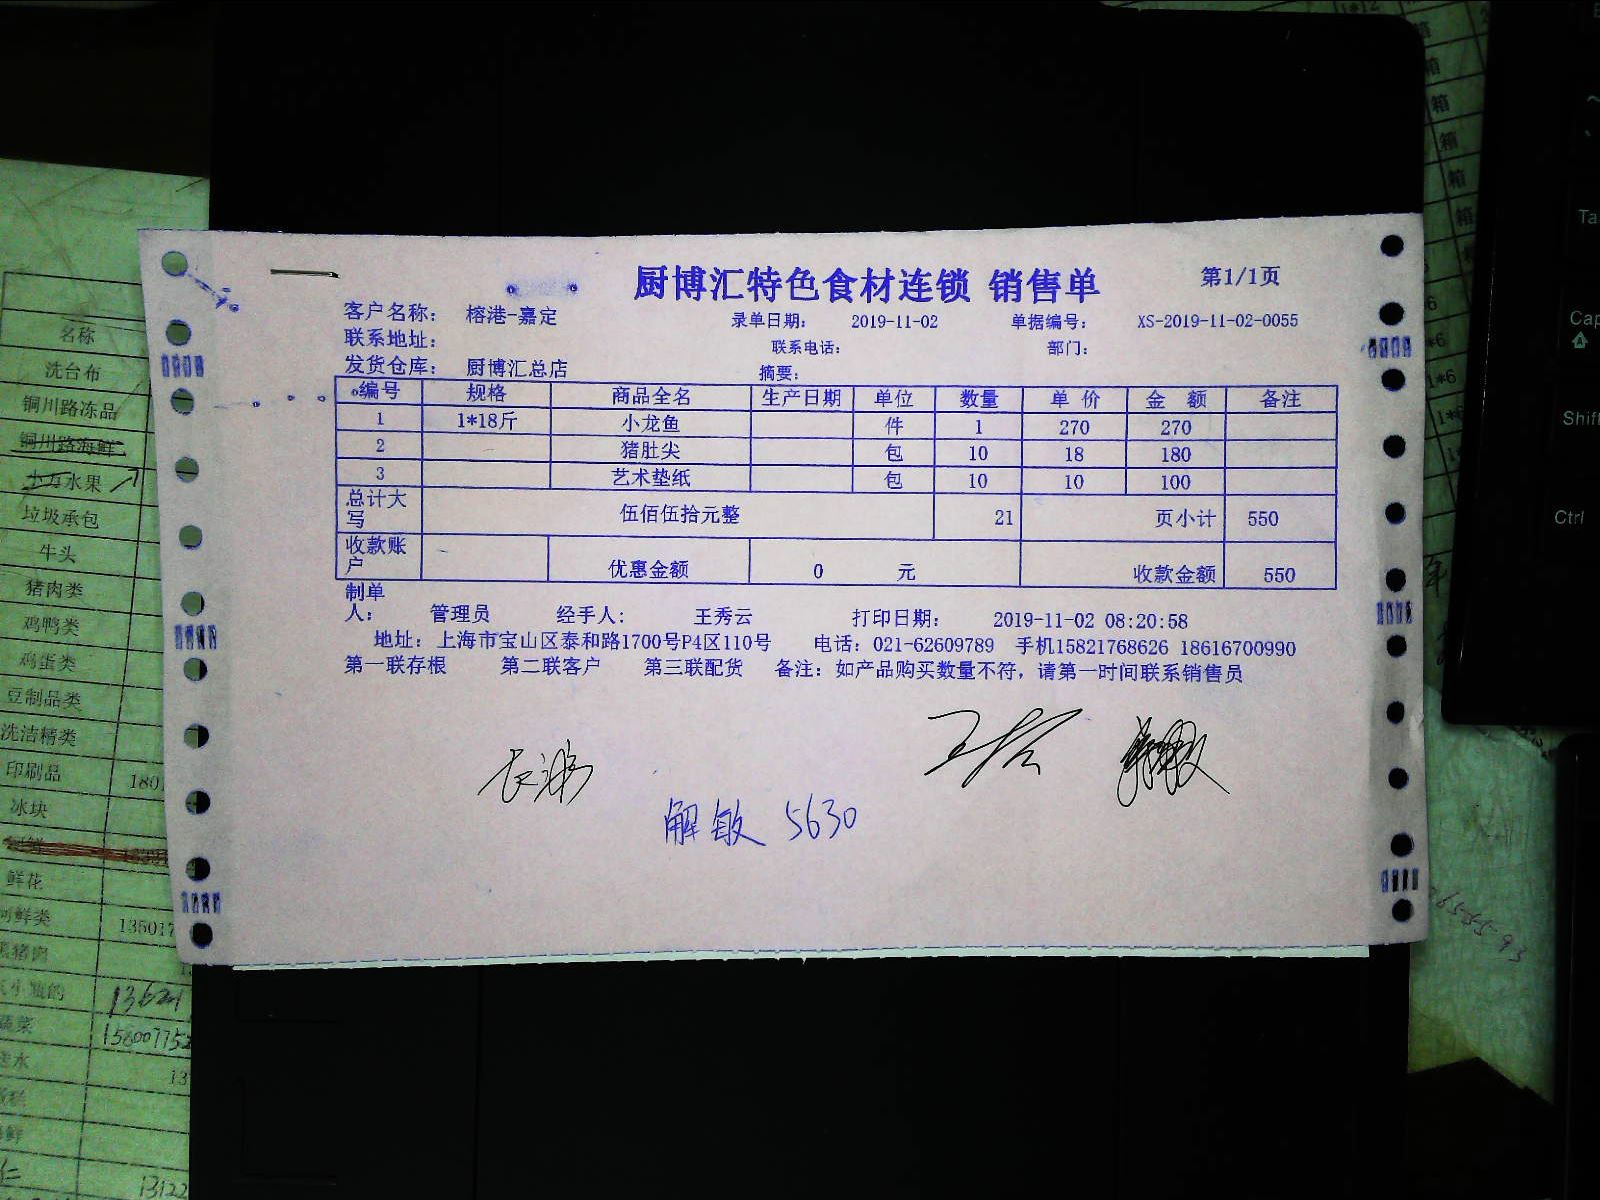 厨博汇特色食材连锁 销售单 第1/1页
客户名称: 榕港-嘉定 录单日期: 2019-11-02 单据编号: XS-2019-11-02-0055
联系地址: 联系电话: 部门:
发货仓库: 厨博汇总店 摘要:
编号 规格 商品全名 生产日期 单位 数量 单价 金额 备注
1 1*18斤 小龙鱼 件 1 270 270
2 猪肚尖 包 10 18 180
3 艺术垫纸 包 10 10 100
总计大写 伍佰伍拾元整 21 页小计 550
收款账户 优惠金额 0 元 收款金额 550
制单人: 管理员 经手人: 王秀云 打印日期: 2019-11-02 08:20:58
地址: 上海市宝山区泰和路1700号P4区110号 电话: 021-62609789 手机15821768626 18616700990
第一联存根 第二联客户 第三联配货 备注: 如产品购买数量不符, 请第一时间联系销售员
解敏 5630
名称
洗台布
铜川路冻品
铜川路海鲜
水果
垃圾承包
牛头
猪肉类
鸡鸭类
鸡蛋类
豆制品类
洗洁精类
印刷品 180
冰块
鲜花
河鲜类 135017
13621
蔬菜 158007752
13
13122
箱
箱
箱
箱
箱
1*6
Ctrl